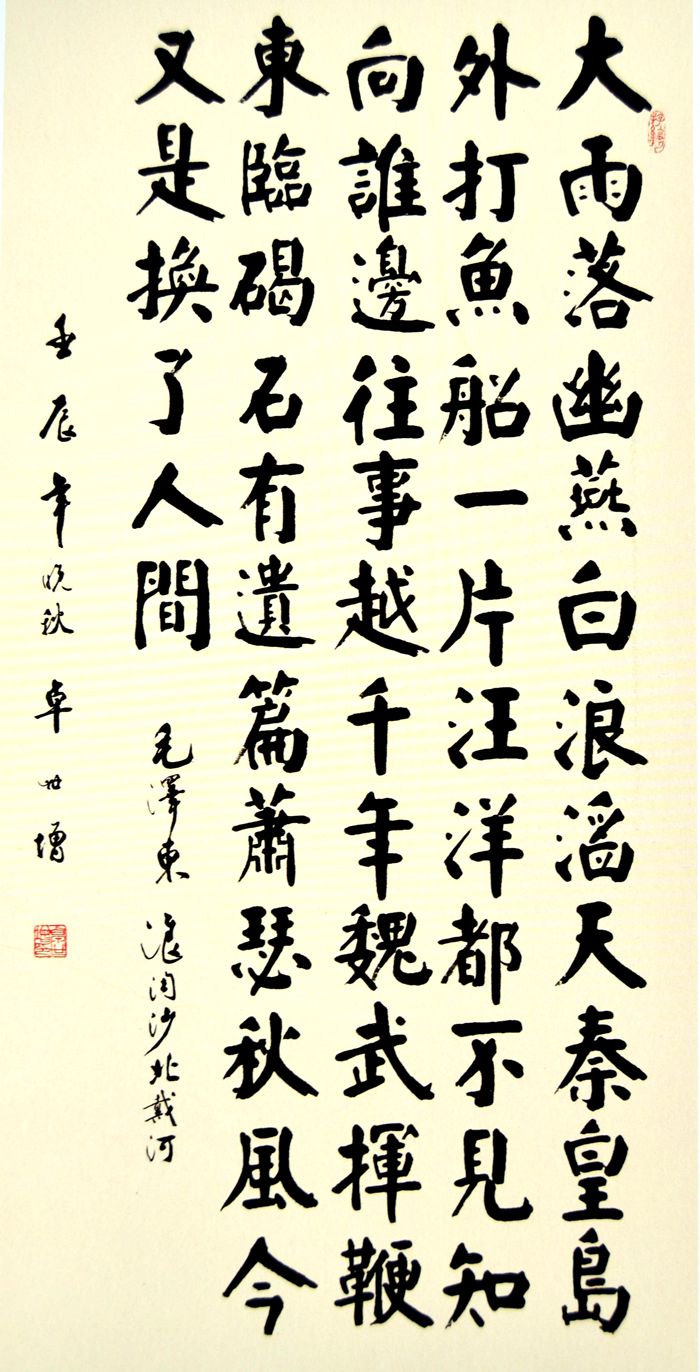 大雨落幽燕白浪滔天秦皇島
外打魚船一片汪洋都不見知
向誰邊往事越千年魏武揮鞭
東臨碣石有遺篇蕭瑟秋風今
又是換了人間
毛澤東 浪淘沙北戴河
壬辰年晚秋 卓世增